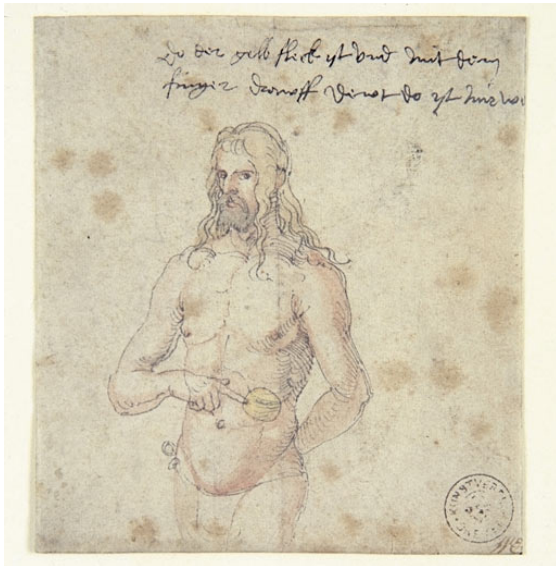 do der gelb fleck yst vnd mit dem
finger drawff dewt do yst mir we
KUNSTVEREIN
BREMEN